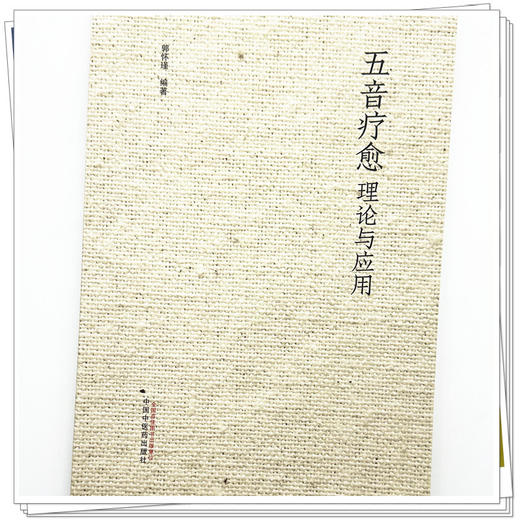 五音疗愈 理论与应用
郭怀瑾 编著
中国中医药出版社